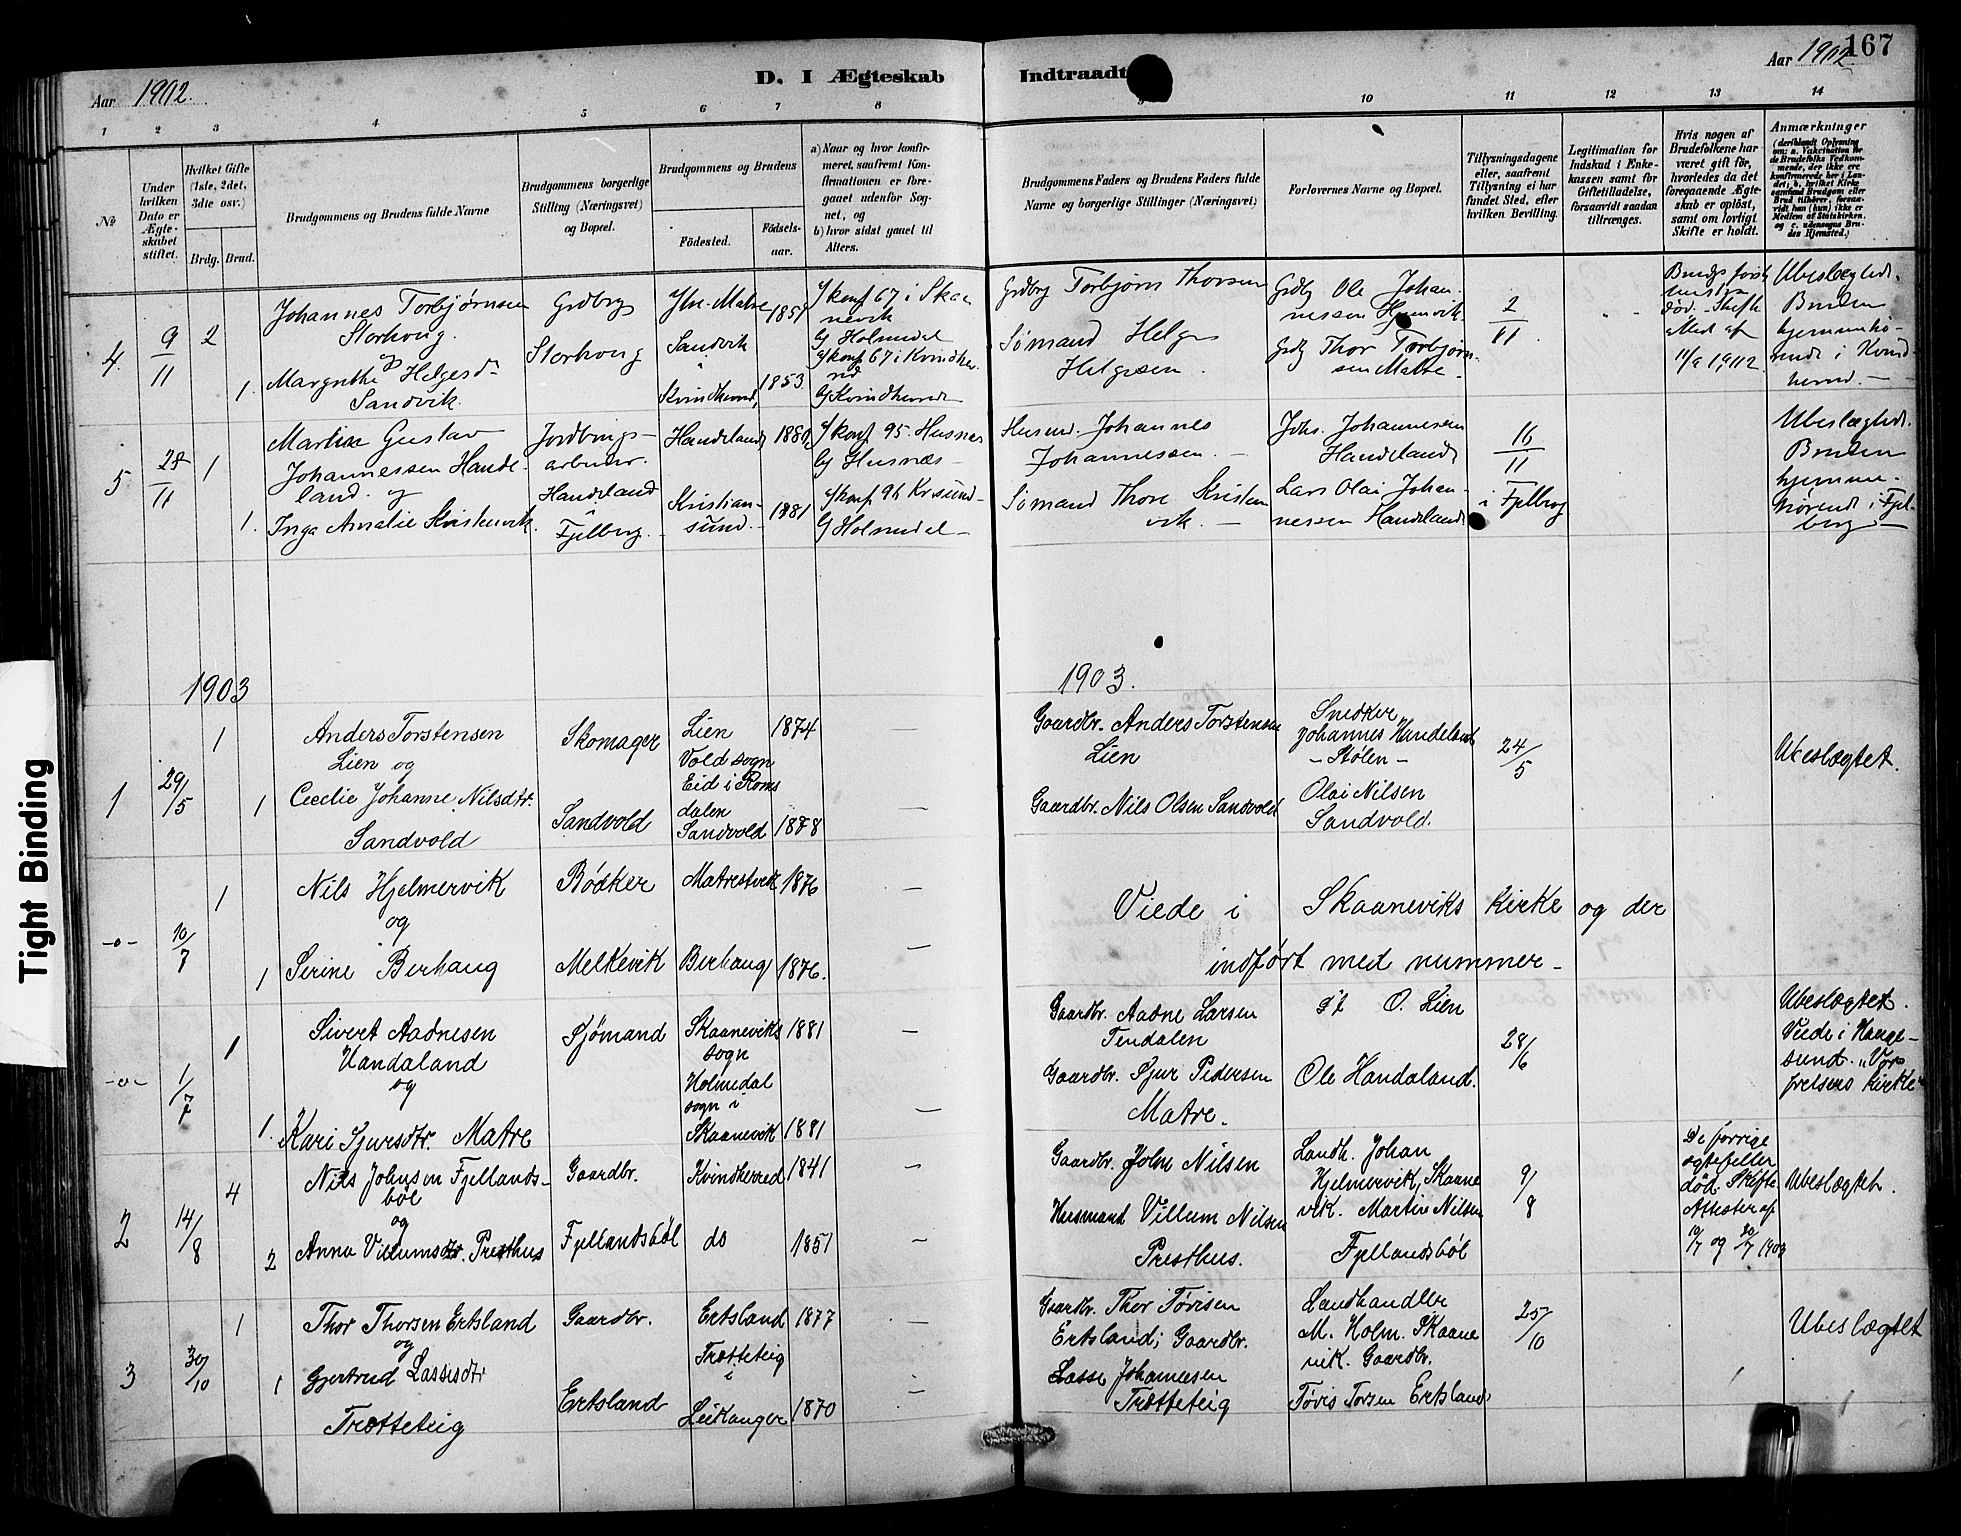 167
Aar 1902.
D. I Ægteskab Indtraadt
Aar 1902
1 2 3 4 5 6 7 8 10 11 12 13 14
№
Under hvilken Dato er Ægteskabet stiftet.
Hvilket Gifte (1ste, 2det, 3dte osv.)
Brdg. Brud.
Brudgommens og Brudens fulde Navne
Brudgommens borgerlige Stilling (Næringsvei) og Bopæl.
Brudgommens og Brudens
Fødested.
Fødselsaar.
a) Naar og hvor konfirmeret, saafremt Konfirmationen er foregaaet udenfor Sognet, og
b) hvor sidst gaaet til Alters.
Brudgommens Faders og Brudens Faders fulde Navne og borgerlige Stillinger (Næringsvei)
Forlovernes Navne og Bopæl.
Tillysningsdagene eller, saafremt Tillysning ei har fundet Sted, efter hvilken Bevilling.
Legitimation for Indskud i Enkekassen samt for Giftetilladelse, forsaavidt saadan tiltrænges.
Hvis nogen af Brudefolkene har været gift før, hvorledes da det foregaaende Ægteskab er opløst, samt om lovligt Skifte er holdt.
Anmærkninger
4.
9/11
2
1.
Johannes Torbjørnsen
Storhoug.
og
Margrethe Helgesd.
Sandvik.
Grdbrg
Storhoug
Ytre-Matre
Sandvik
i
Kvindherred,
1851
1853.
a/ konf 67 i Skaanevik
b/ Holmedal
a/ konf 67 i Kvindherred
b/ Kvindherred
Grdbrg Torbjørn Thorsen
Sømand Helge
Helgesen.
Grdb Ole Johannessen
Grdb Thor Torbjørnsen Matre.
2/11
død. Skifte
11/9 1902.
Ubeslægtede.
Bruden
hjemmehørende i Kvindherred.
5
28/11
1
1.
Martin Gustav
Johannessen Handeland.
og
Inga Amalie Kristenvik.
Jordbrugsarbeider.
Handeland
i
Fjelberg.
Handeland,
Kristiansund.
1880
1881
a/ konf 95. Husnæs
b/ Husnæs
a/ konf 96 Kr.sund
b/ Holmedal
Husmd. Johannes
Johannessen.
Sømand Thore Kristenvik.
Johs. Johannesen
Handeland
Lars Olai Johannessen Handeland
16/11
i Fjelberg
Ubeslægtede.
Bruden
hjemmehørende i Fjelberg
1903
1903.
1
29/5
1
1
Anders Torstensen
Lien og
Cecilie Johanne Nilsdtr.
Sandvold
Skomager
Sandvold
Lien
Vold sogn
Eid i Romsdalen
Sandvold
1874
1878
Gaardbr. Anders Torstensen
Lien
Gaardbr. Nils Olsen Sandvold
Snedker
Johannes Handeland
- Stølen -
Olai Nilsen
Sandvold.
24/5
Ubeslægtet.
-o-
10/7
1
1
Nils Hjelmervik
og
Serine Berhaug
Bødker
Melkevik
Matrestvek
Berhaug
1876
1876.
Viede i Skaaneviks Kirke og der
indført med nummer -
-o-
1/7
1
1.
Sivert Aadnesen
Handaland
og
Kari Sjursdtr. Matre
Sjømand
Skaaneviks
sogn
Holmedal
sogn i
Skaanevik
1881
1881
Gaardbr. Aadne Larsen
Tendalen
Gaardbr. Sjur Pedersen
Matre.
O. Lien
Ole Handaland.
28/6
Ubeslægtet.
Viede i Haugesund. "Vor
frelsers Kirke"
2
14/8
4
2
Nils Johnsen Fjellandsbøl
og
Anna Villumsdtr. Presthus
Gaardbr.
Fjellandsbøl
Kvindherred
do
1841
1851
Gaardbr. John Nilsen
Husmand Villum Nilsen
Presthus.
Landh. Johan
Hjelmervik, Skaanevik. Martin Nilsen
Fjellandsbøl
9/8
De forrige
egtefeller
død. Skifte
Attester af
10/7 og 20/7 1903
Ubeslægtet.
3
30/10
1
1
Thor Thorsen Ertsland
og
Gjertrud Lassesdtr
Trætteteig
Gaardbr.
Ertsland
Ertsland
Trætteteig
i
Leikanger
1877
1870
Gaardbr. Thor Tørisen
Ertsland; Gaardbr.
Lasse Johannesen
Trætteteig
Landhandler
M. Holm. Skaanevik. Gaardbr.
Tøris Torsen Ertsland
25/10
Ubeslægtet
Tight Binding